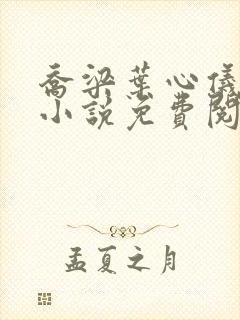 乔梁葉心儀
小說免費閱
孟夏之月